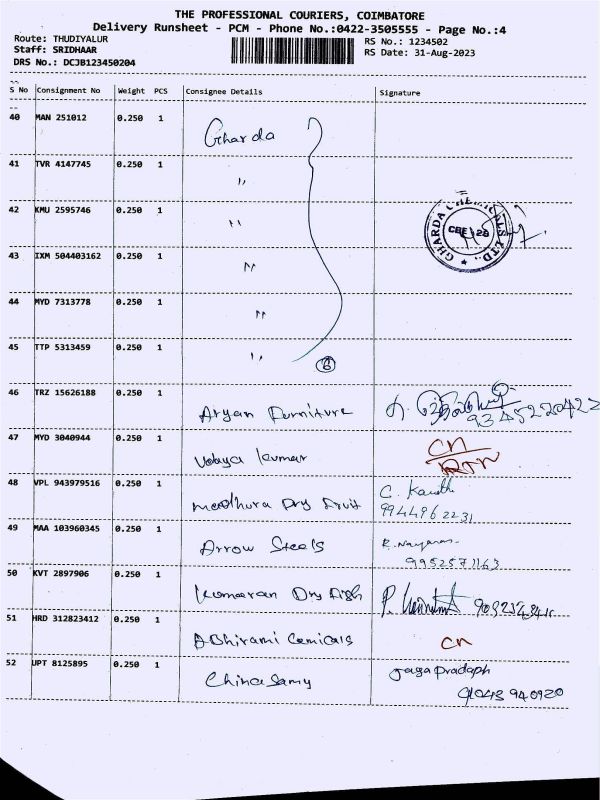 THE PROFESSIONAL COURIERS, COIMBATORE
Delivery Runsheet - PCM - Phone No.:0422-3505555 - Page No.:4
Route: THUDIYALUR RS No.: 1234502
Staff: SRIDHAAR RS Date: 31-Aug-2023
DRS No.: DCJB123450204
S No Consignment No Weight PCS Consignee Details Signature
40 MAN 251012 0.250 1 Gharda
41 TVR 4147745 0.250 1 "
42 KMU 2595746 0.250 1 "
GHARDA CHEMICALS LTD., CBE
43 IXM 504403162 0.250 1 "
44 MYD 7313778 0.250 1 "
45 TTP 5313459 0.250 1 " 6
46 TRZ 15626188 0.250 1 Aryan Furniture 9345220422
47 MYD 3040944 0.250 1 Udaya Kumar CN RTN
48 VPL 943979516 0.250 1 Madhura Dry Fruit C.
9944962231
49 MAA 103960345 0.250 1 Arrow Steels R.
9952571163
50 KVT 2897906 0.250 1 Kumaran Dry Fish P.
51 HRD 312823412 0.250 1 ABhirami Cemicals CN
52 UPT 8125895 0.250 1 ChinaSamy Jaga Pradaph
91043 940920